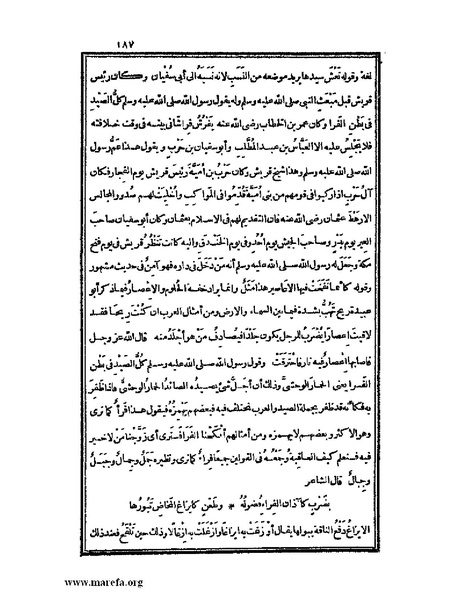 ١٨٧
لغة وقوله تَحُشُّ سيدها يريد موضعه من النَّسَب لانه نَسَبَهُ الى أبى سفيان وكان رئيس
قريش قبل مَبْعَث النبى صلى الله عليه وسلم وله يقول رسول الله صلى الله عليه وسلم كلُّ الصَّيْد
فى بَطْن الفَرا وكان عمر بن الخطاب رضى الله عنه يَفْرُشُ فراشا فى بيته فى وقت خلافته
فلا يَجْلسُ عليه الا العَبَّاسُ بن عبد المُطَّلب وأبو سفيان بن حَرْب و يقول هذا عمُّ رسول
الله صلى الله عليه وسلم وهذا شيخ قريش وكان حَرْبُ بن أُمَيَّةَ رئيس قريش يوم الفجار فكان
آلُ حَرْب اذا ركبوا فى قومهم من بنى أُمَيَّةَ قَدَّموا فى المَواكب وأُخليَتْ لهم صدور المجالس
الا رَهْطَ عثمان رضى الله عنه فان التقديم لهم فى الاسلام بعثمان وكان أبو سفيان صاحبَ
العير يوم بَدْر وصاحبَ الجَيْش يوم أُحُد وفى يوم الخَنْدَق واليه كانت تَنْظُر قريش فى يوم فتح
مكة وجَعَلَ له رسول الله صلى الله عليه وسلم أنه مَنْ دَخَلَ فى داره فهو آمنٌ فى حديث مشهور
وقوله كأنما تَفَقَّعَتْ فيها الاعاصير هذا مَثَلٌ وانما يراد خفةُ الحُلُوم والاعْصار فيما ذكر أبو
عبيدة ريح تَهُبُّ بشدة فيما بين السماء والارض ومن أمثال العرب ان كُنْتَ ريحا فقد
لاقيتَ اعصارا يُضْرَبُ للرجل يكون جَلْدا فيصادف مَنْ هو أجْلَدُ منه قال الله عز وجل
فاصابها اعصارٌ فيه نار فاحترقَتْ وقول رسول الله صلى الله عليه وسلم كلُّ الصَّيْد فى بَطن
الفَرا يعنى الحمارَ الوحشىَّ وذلك أن أجلَّ شئ يصيده الصائدُ الحمارُ الوحشىُّ فاذا ظَفر
به فكأنه قد ظَفر بجملة الصيد والعرب تختلف فيه فبعضهم يَهْمزُهُ فيقول هذا فرأٌ كما ترى
وهو الاكثر وبعضهم لا يهمزه ومن أمثالهم أنْكَحْنا الفَرا فَسَنَرى أى زَوَّجْنا مَنْ لا خير
فيه فسنعلم كيف العاقبة وجَمْعُهُ فى القولين جميعا فِراءٌ كما ترى ونظيره جَمَلٌ وجِمالٌ وجَبَلٌ
وجِبالٌ قال الشاعر
بضَرْب كآذان الفراء فُضولُهُ * وطَعْن كايزاغ المَخاض تَبُورُها
الايزاغُ دَفْعُ الناقة ببولها يقال أوْزَغَتْ به ايزاغا وأزْغَلَتْ به ازْغالا وذلك حين تَلْقَحُ فعند ذلك
www.marefa.org